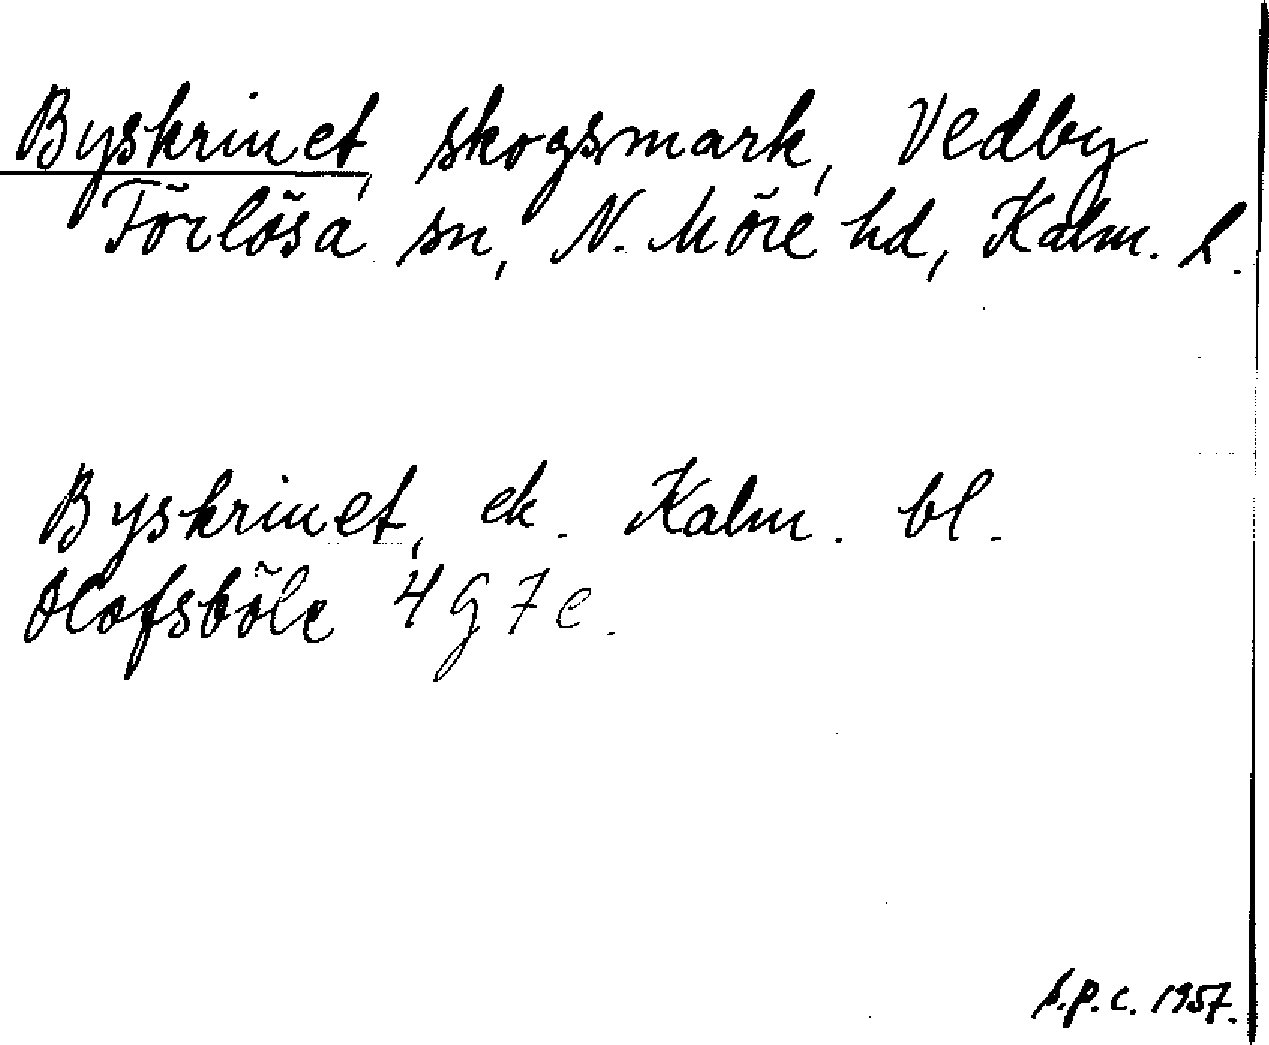 Byskrinet, skogsmark, Vedby
Förlösa sn, N. Möre hd, Kalm. l.
Byskrinet, ek. Kalm. bl.
Olofsböle 4G7e.
S.P.C. 1957.